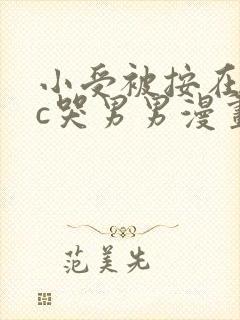 小受被按在
c哭男男漫畫
范美先